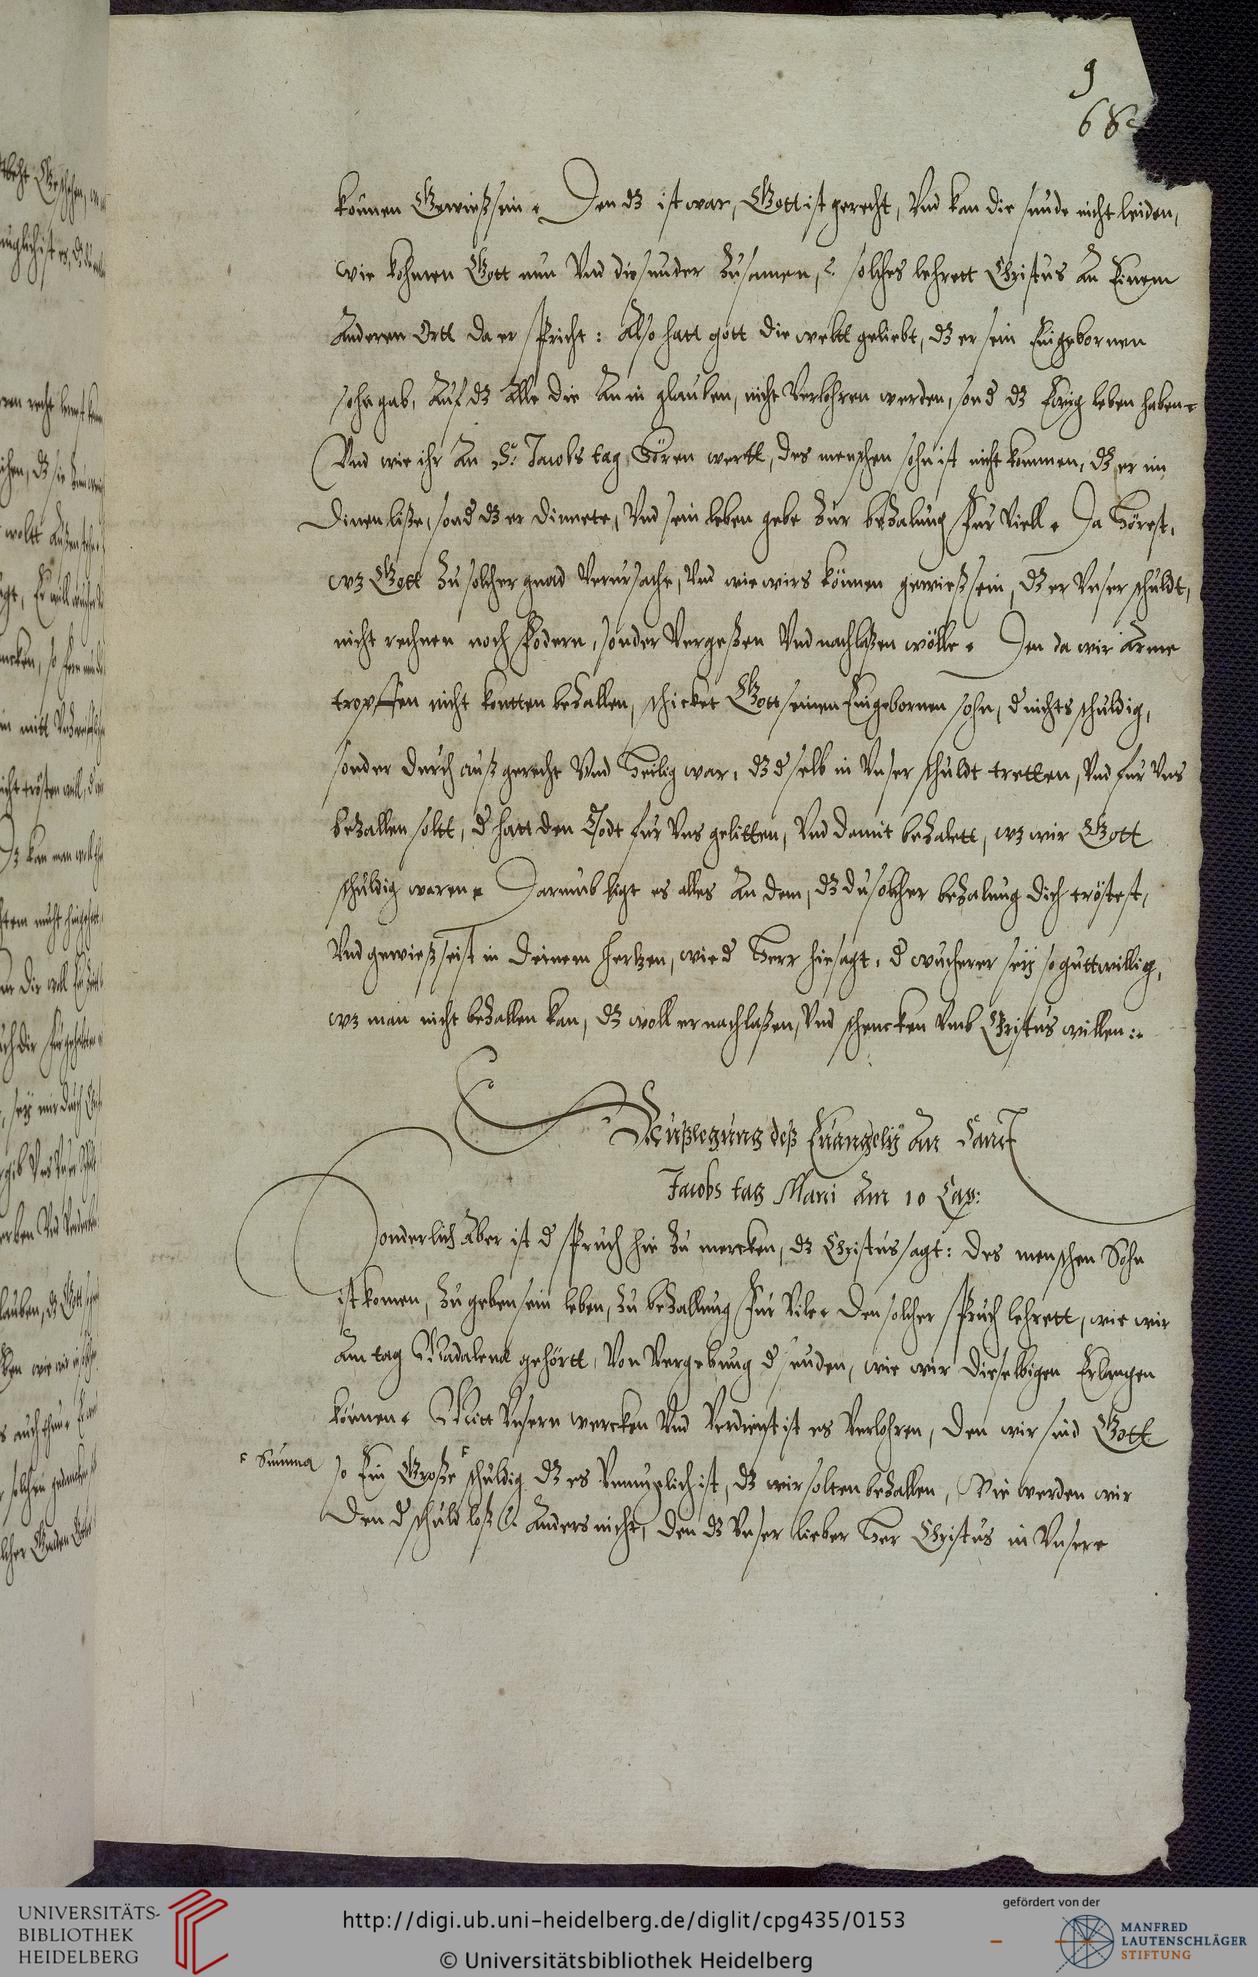 9
68
konnen Gewieß sein. Den dz ist war, Gott ist gerecht, Vnd kan die sunde nicht leiden,
wie kohmen Gott nun Vnd die sunder Zusamen,? solches lehrett Christus An Einem
Anderen Ortt da er spricht: Also hatt gott die weltt geliebt, dz er sein Eingebornen
sohn gab, Auf dz Alle die An in glauben, nicht Verlohren werden, sond dz Ewig leben haben.
Vnd wie ihr An S: Jacobs tag Hören wertt, des menschen sohn ist nicht kommen, dz er im
dinen liße, sond dz er dinnete, Vnd sein leben gebe Zur beZalung Fur Viell. Da Hörest,
wz Gott Zu solcher gnad Verursache, Vnd wie wirs können gewieß sein, dz er Vnser schuldt,
nicht rechnen noch Fodern, sonder Vergeßen Vnd nachlaßen wölle. Den da wir Arme
tropffen nicht kontten beZallen, schicket Gott seinen Eingebornen sohn, d nichts schuldig,
sonder durch auß gerecht Vnd Heilig war, dz d selb in Vnser schuldt tretten, Vnd fur Vns
beZallen soltt, d hatt den Todt fur Vns gelitten, Vnd damit beZalett, wz wir Gott
schuldig waren. Darumb ligt es alles An dem, dz du solcher beZalung dich tröstest,
Vnd gewieß seist in deinem hertzen, wie d Herr hie sagt, d wucherer seÿ so guttwillig,
wz man nicht beZallen kan, dz woll er nachlaßen, Vnd schencken Vmb Christus willen:.
Außlegung deß Euangelij An Sanct
Jacobs tag Marci Am 10 Cap:
Sonderlich Aber ist d spruch hie Zu mercken, dz Christus sagt: des menschen Sohn
ist komen, Zu geben sein leben, Zu beZallung Fur Vile. Den solcher spruch lehrett, wie wir
Am tag Madalena gehörtt, Von Vergebung d sunden, wie wir dieselbigen Erlangen
können. Mitt Vnsern wercken Vnd Verdinst ist es Verlohren, den wir sind Gott
Summa
so Ein Große schuldig dz es Vnmuglich ist, dz wir solten beZallen, Wie werden wir
den d schuld loß? Anders nicht, den dz Vnser lieber Her Christus in Vnsere
UNIVERSITÄTS-
BIBLIOTHEK
HEIDELBERG
http://digi.ub.uni-heidelberg.de/diglit/cpg435/0153
© Universitätsbibliothek Heidelberg
gefördert von der
MANFRED
LAUTENSCHLÄGER
STIFTUNG